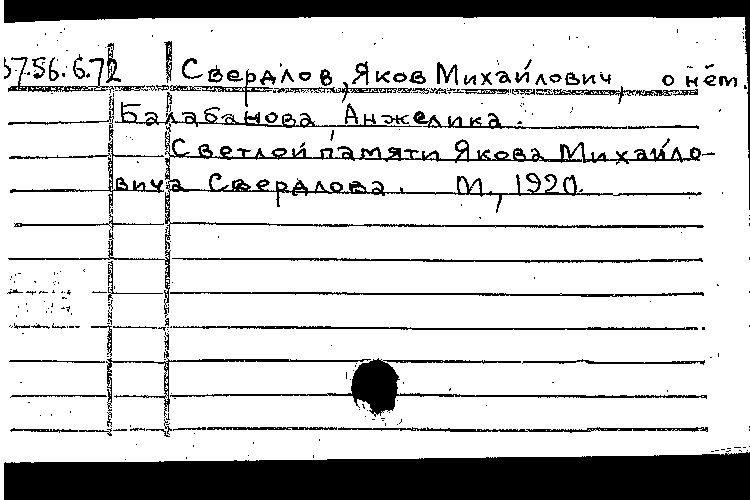 37.56.6.72 Свердлов, Яков Михайлович, о нём.
Балабанова Анжелика.
Светлой памяти Якова Михайло-
вича Свердлова. М., 1920.